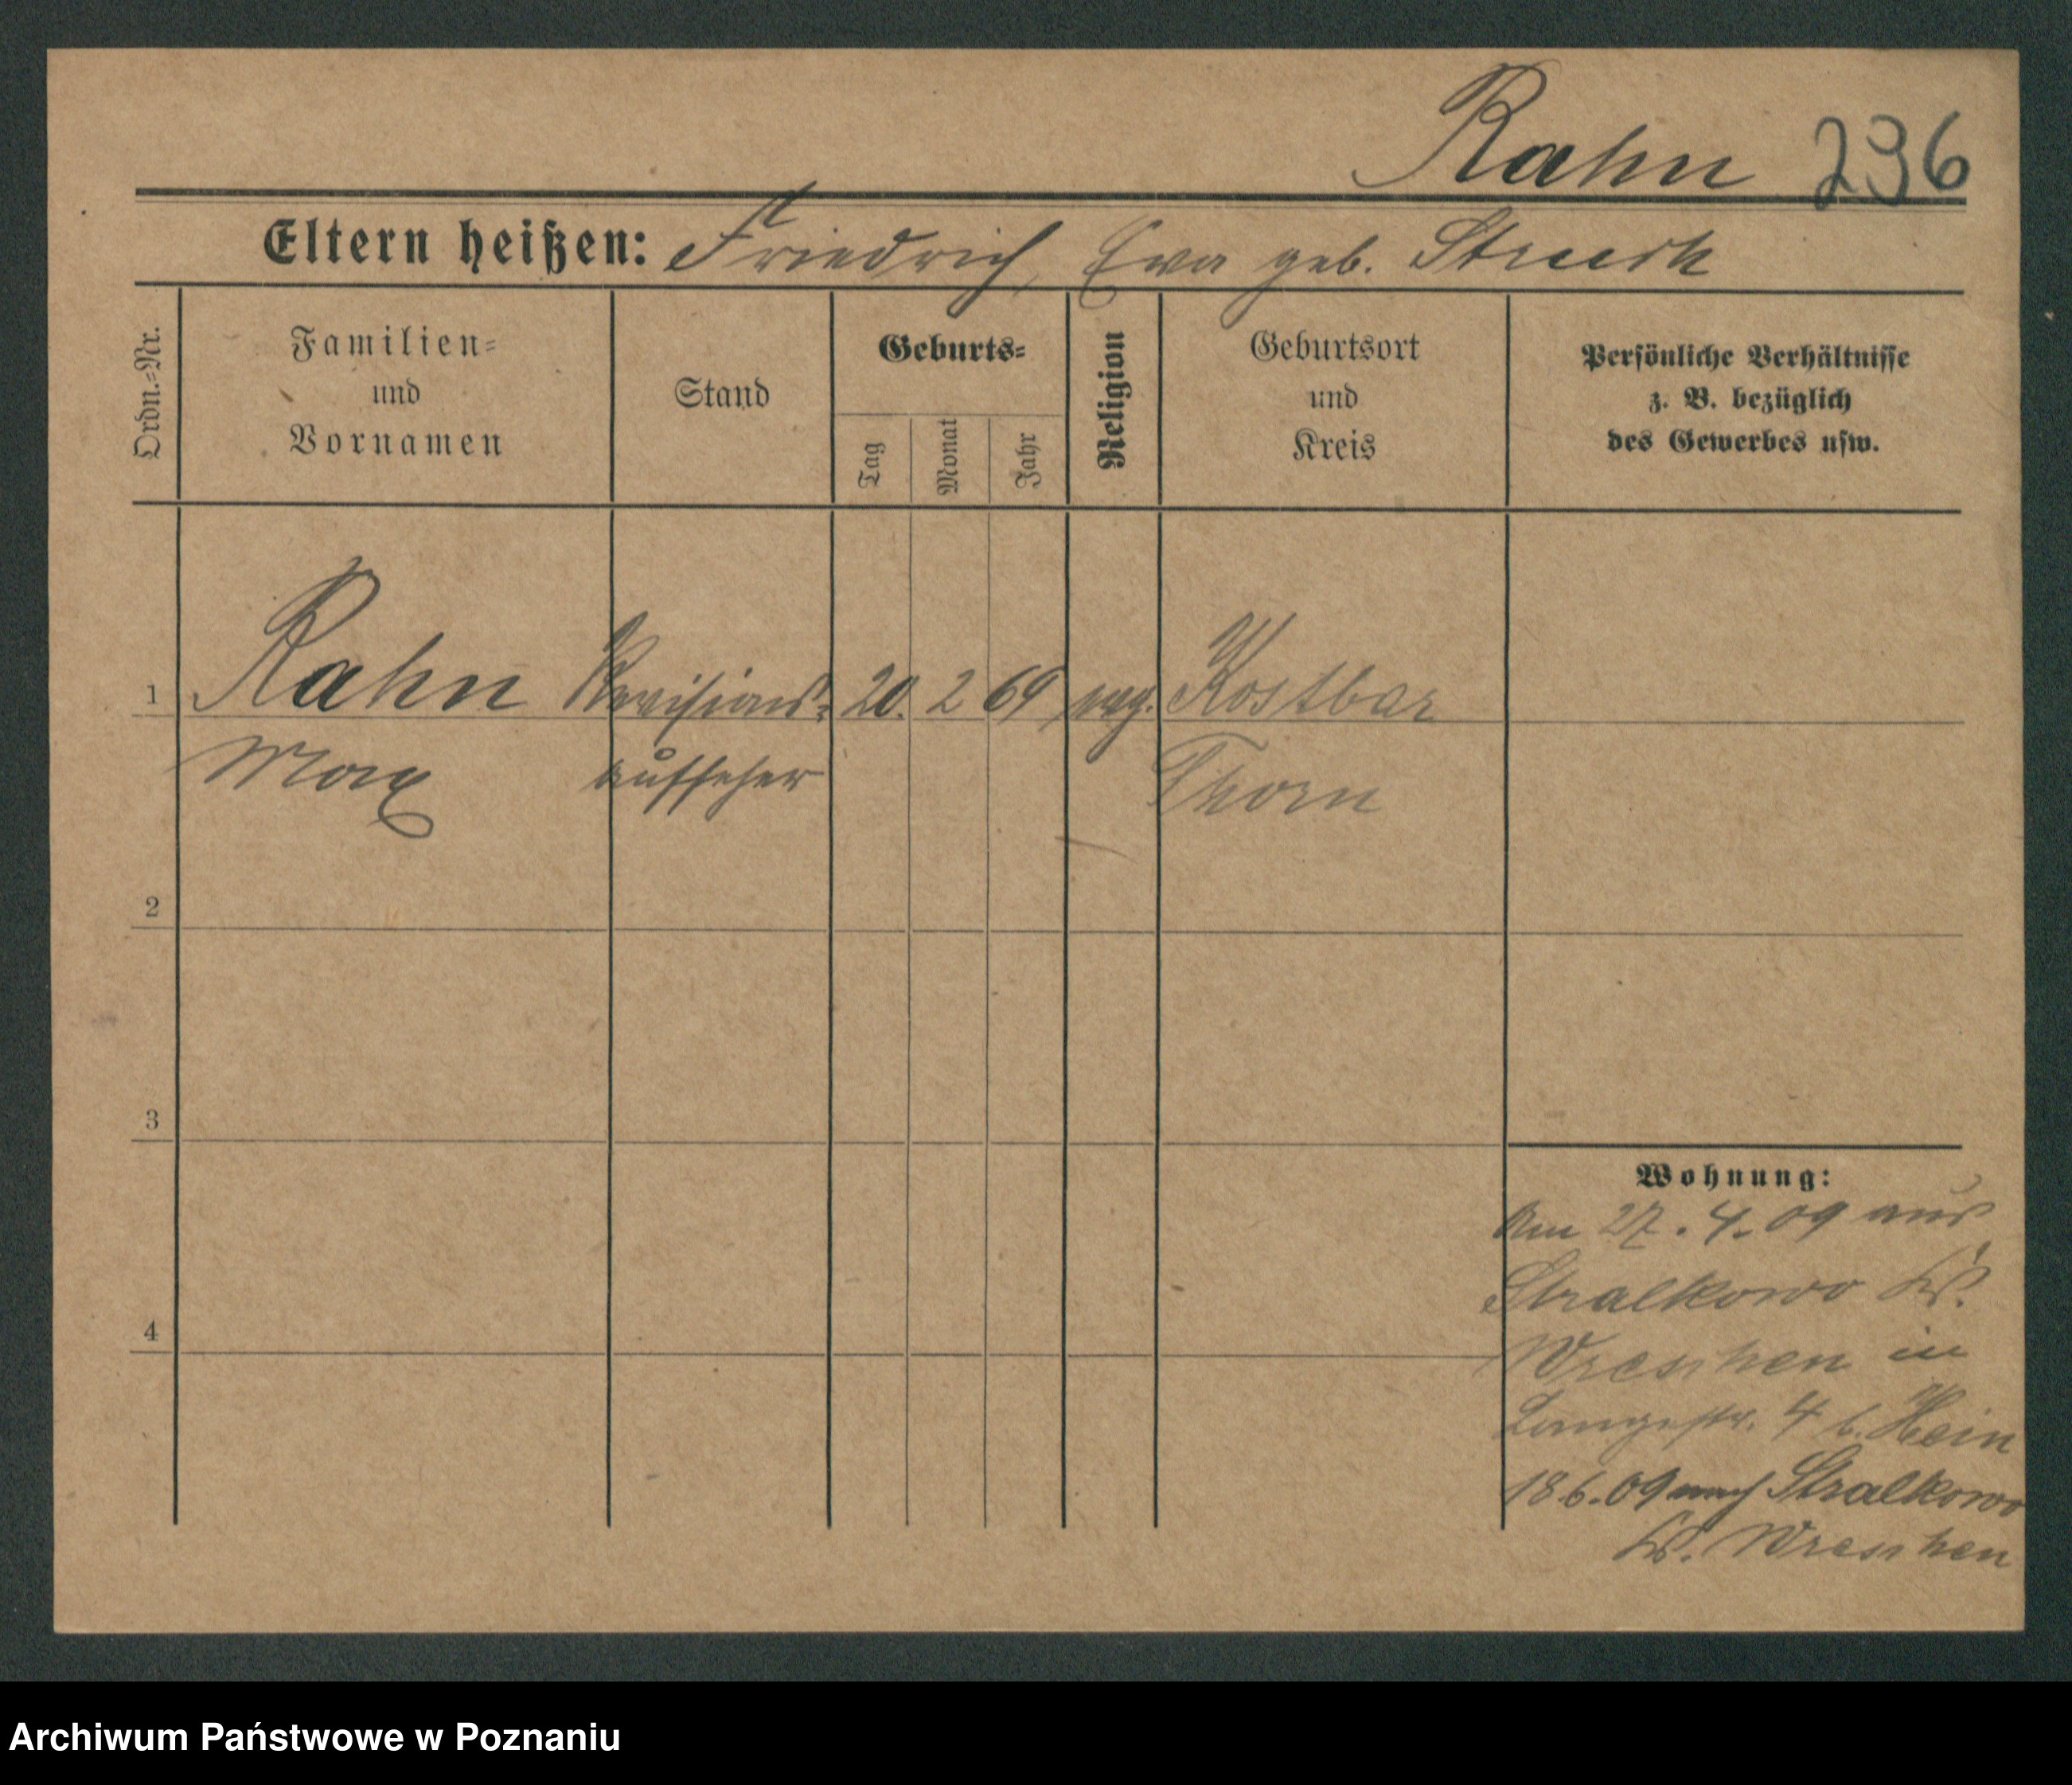 Rahn 236
Eltern heißen: Friedrich, Eva geb. Struck
Ordn.=Nr.
Familien=
und
Vornamen
Stand
Geburts=
Tag
Monat
Jahr
Religion
Geburtsort
und
Kreis
Persönliche Verhältnisse
z. B. bezüglich
des Gewerbes usw.
1 Rahn Revisions= 20. 2 69 evg. Kostbar
Max aufseher Thorn
2
3
4
Wohnung:
Am 27. 4. 09 aus
Stralkowo Kr.
Wreschen in
Langestr. 4 b. Hein
18.6.09 nach Stralkowo
Kr. Wreschen
Archiwum Państwowe w Poznaniu